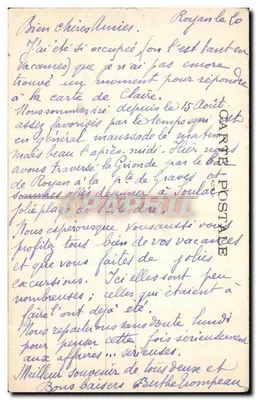 Royan le 20
Bien chères Amies.
J'ai été si occupée (on l'est tant en
vacances) que je n'ai pas encore
trouvé un moment pour répondre
à la carte de Claire.
Nous sommes ici depuis le 15 Août
assez favorisés par le temps qui est
en général maussade le matin
mais beau l'après-midi. Hier nous
avons traversé la Gironde par le bac
de Royan à la pte de Graves et
sommes allés déjeuner à Soulac
jolie plage de
Nous espérons que vous aussi vous
profitez tous bien de vos vacances
et que vous faites de jolies
excursions. Ici elles sont peu
nombreuses ; celles qui étaient à
faire l'ont déjà été.
Nous repartirons sans doute lundi
pour penser cette fois sérieusement
aux affaires... sérieuses.
Meilleur souvenir de tous deux et
Bons baisers Berthe
CARTE POSTALE